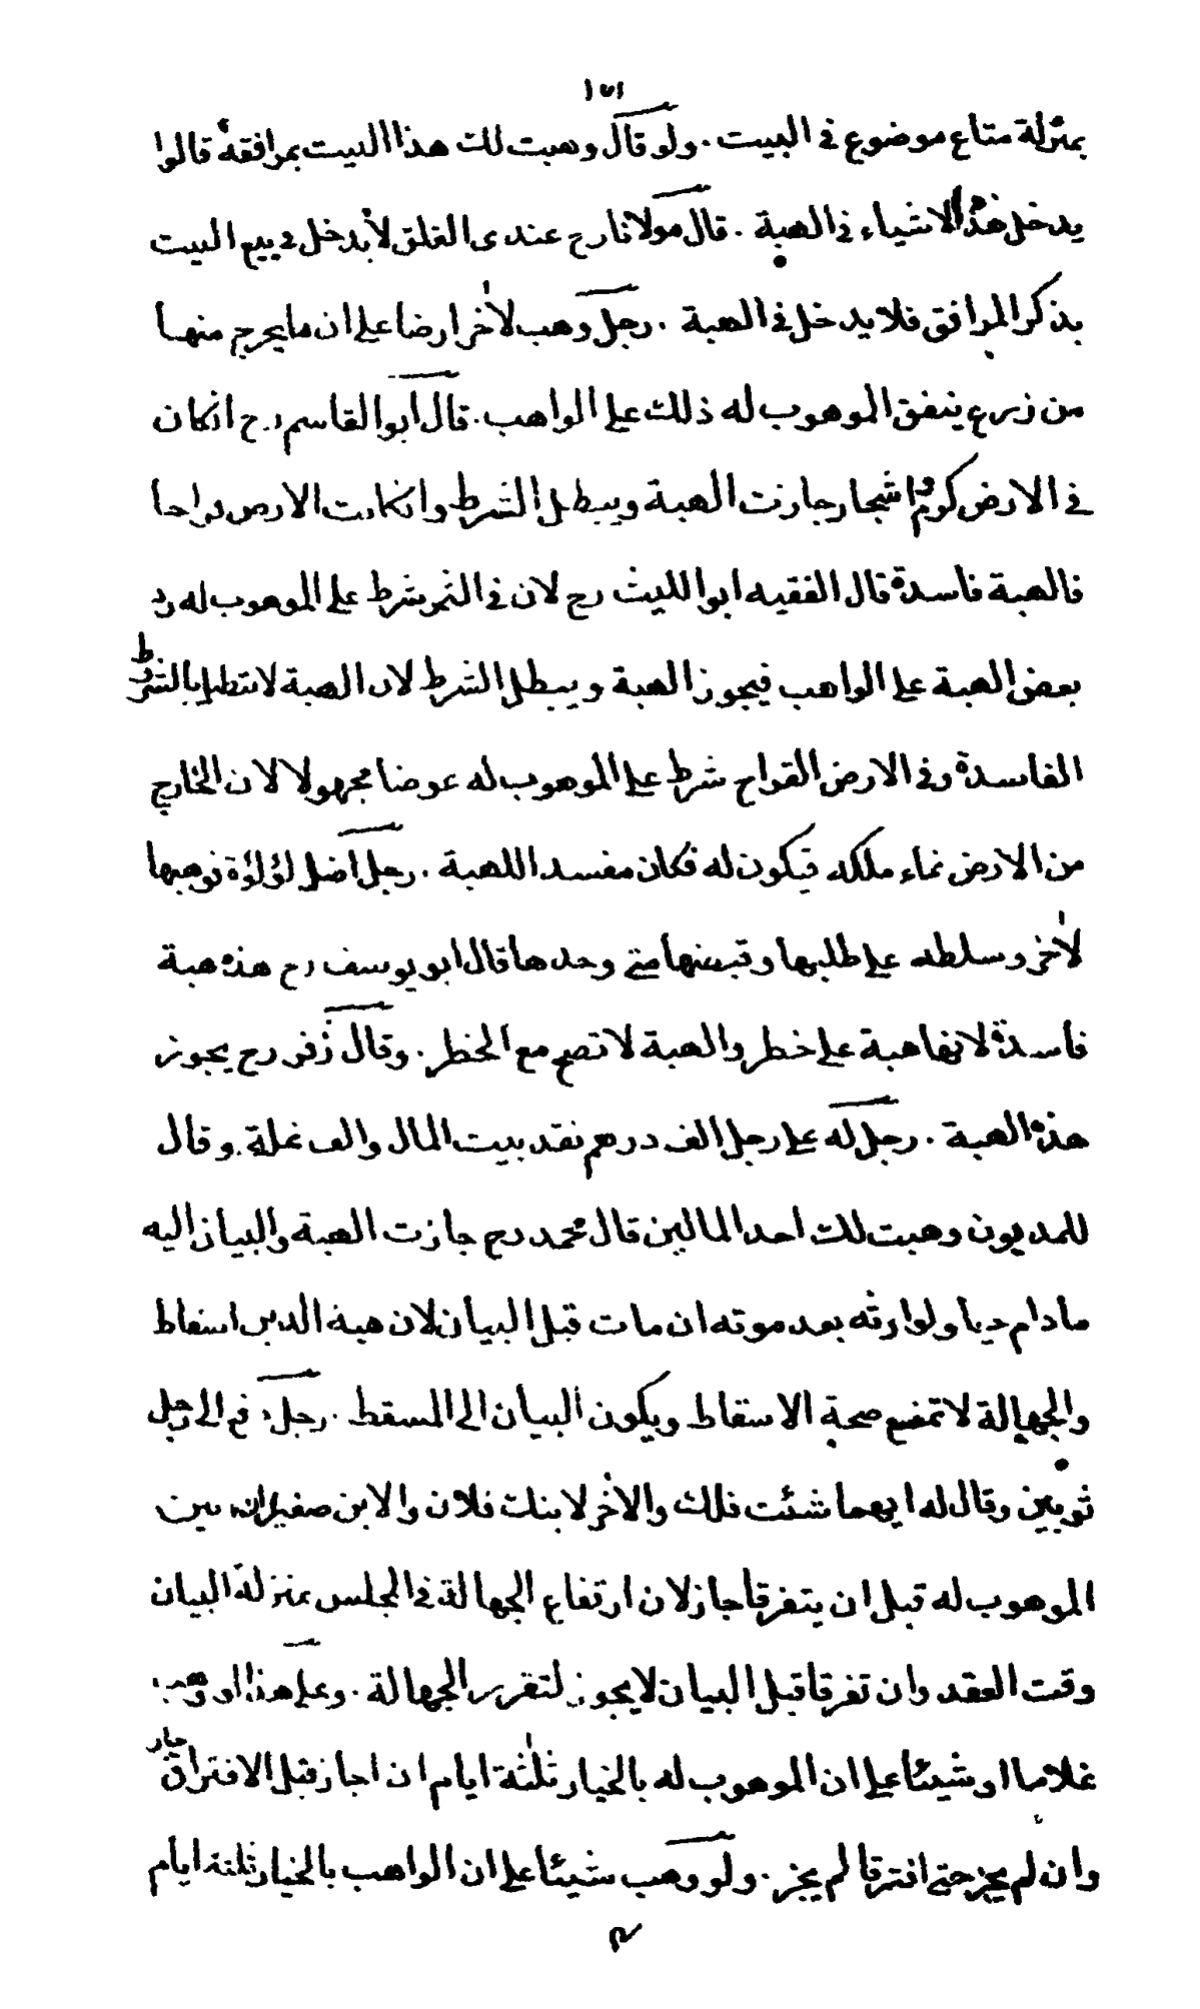 ١٥١
بمنزلة متاع موضوع في البيت . ولو قال وهبت لك هذا البيت بمرافقه قالوا
يدخل هذه الاشياء في الهبة . قال مولانا رح عندى الغلق لا يدخل في بيع البيت
بذكر المرافق فلا يدخل في الهبة . رجل وهب لاخر ارضا على ان ما يخرج منها
من زرع ينفق الموهوب له ذلك على الواهب . قال ابو القاسم رح ان كان
في الارض كروم و اشجار جازت الهبة ويبطل الشرط وان كانت الارض قراحا
فالهبة فاسدة قال الفقيه ابو الليث رح لان في الثمر شرط على الموهوب له رد
بعض الهبة على الواهب فيجوز الهبة ويبطل الشرط لان الهبة لا تبطل بالشرط
الفاسدة وفي الارض القراح شرط على الموهوب له عوضا مجهولا لان الخارج
من الارض نماء ملكه فيكون له فكان مفسدا للهبة . رجل اضل لؤلؤة فوهبها
لاخر وسلطه على طلبها وقبضها متى وجدها قال ابو يوسف رح هذه هبة
فاسدة لانها هبة على خطر والهبة لا تصح مع الخطر . وقال زفر رح يجوز
هذه الهبة . رجل له على رجل الف درهم نقد بيت المال والف غلة وقال
للمديون وهبت لك احد المالين قال محمد رح جازت الهبة والبيان اليه
مادام حيا ولوارثه بعد موته ان مات قبل البيان لان هبة الدين اسقاط
والجهالة لا تمنع صحة الاسقاط ويكون البيان الى المسقط . رجل دفع الى رجل
ثوبين وقال له ايهما شئت فلك والاخر لابنك فلان والابن صغير ان بين
الموهوب له قبل ان يتفرقا جاز لان ارتفاع الجهالة في المجلس بمنزلة البيان
وقت العقد وان تفرقا قبل البيان لا يجوز لتقرر الجهالة . وعلى هذا لو وهب
غلاما او شيئا على ان الموهوب له بالخيار ثلثة ايام ان اجاز قبل الافتراق جاز
وان لم يجز حتى افترقا لم يجز . ولو وهب شيئا على ان الواهب بالخيار ثلثة ايام